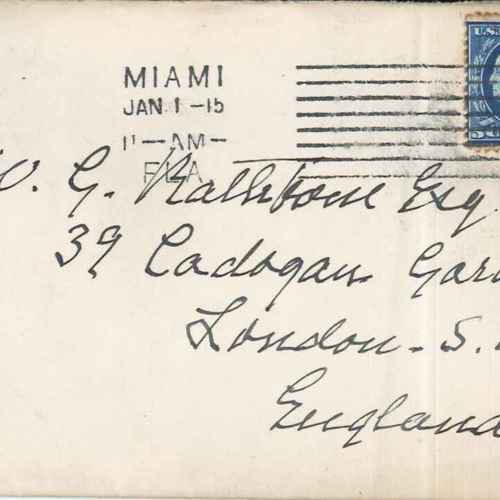 MIAMI
JAN 1 -15
11-AM-
FLA.
U.S.
5
W. G. Rathbone Esq.
39 Cadogan Gar
London. S.
England